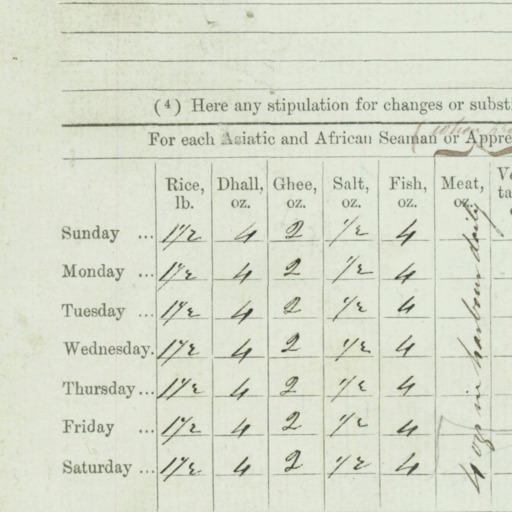 (4) Here any stipulation for changes or subst
For each Asiatic and African Seaman or Appre
Rice, lb. Dhall, oz. Ghee, oz. Salt, oz. Fish, oz. Meat, oz.
Sunday ... 1 1/2 4 2 1/2 4
Monday ... 1 1/2 4 2 1/2 4
Tuesday ... 1 1/2 4 2 1/2 4
Wednesday. 1 1/2 4 2 1/2 4
Thursday ... 1 1/2 4 2 1/2 4
Friday ... 1 1/2 4 2 1/2 4
Saturday ... 1 1/2 4 2 1/2 4
4 ozs in harbour daily